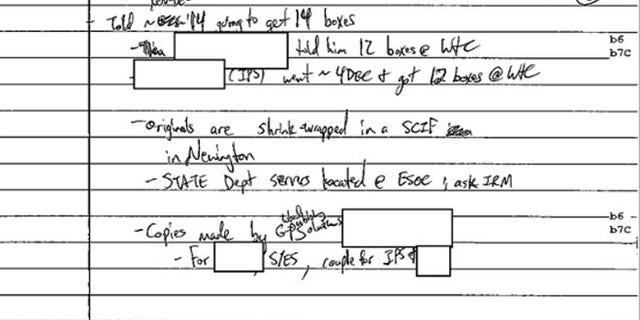 - Told ~ '14 going to get 14 boxes
- Then told him 12 boxes @ W&C b6 b7C
- (IPS) went ~ 4DEC & got 12 boxes @ W&C
- Originals are shrink-wrapped in a SCIF
in Newington
- STATE Dept servers located @ ESOC ; ask IRM
- Copies made by Solutions b6 b7C
- For S/ES, couple for IPS &